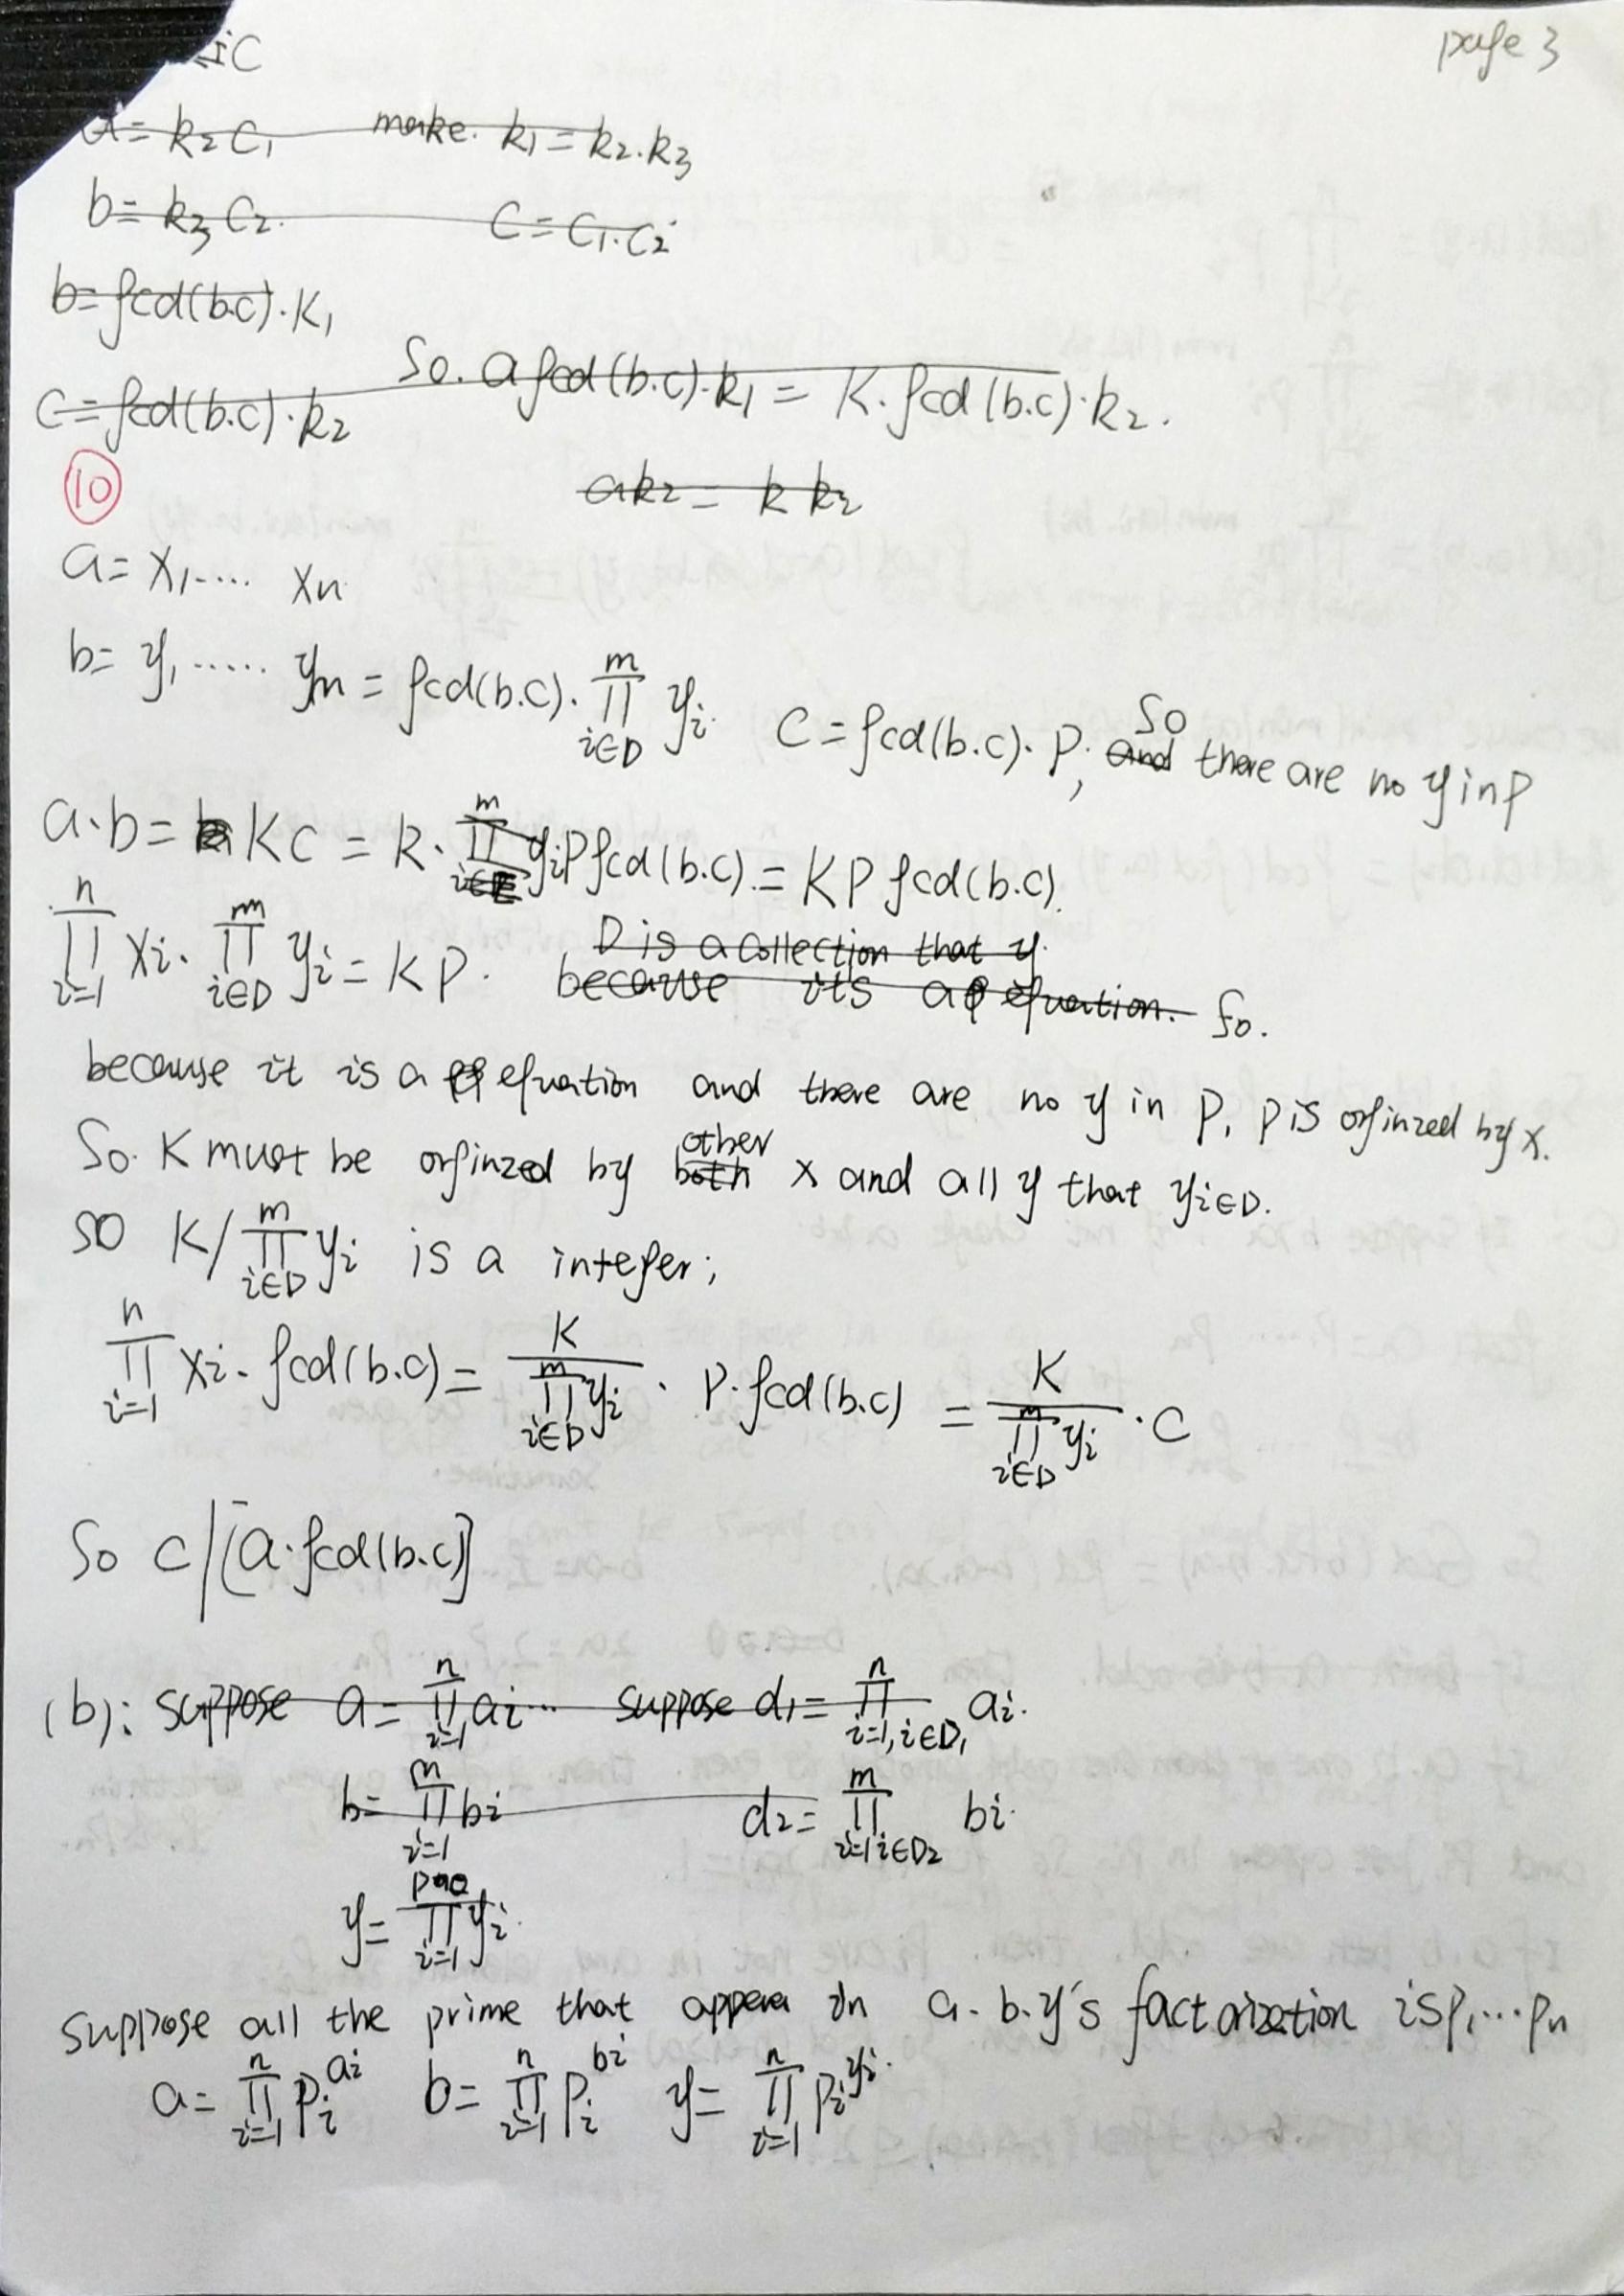 page 3
a = k₂c₁ make. k₁ = k₂.k₃
b = k₃c₂. c = c₁.c₂
b = gcd(b.c).k₁
So. a gcd(b.c).k₁ = K.gcd(b.c).k₂.
c = gcd(b.c).k₂
10
ak₂ = k k₂
a = x₁..... xₙ
b = y₁..... yₘ = gcd(b.c). ∏_{i∈D}^{m} yᵢ. c = gcd(b.c). P, and So there are no y in P
a.b = Kc = k. ∏^{m} yᵢ P gcd(b.c). = KP gcd(b.c).
∏_{i=1}^{n} xᵢ. ∏_{i∈D}^{m} yᵢ = KP. D is a collection that y.
because its a equation. So.
because it is a equation and there are no y in P, P is orginzed by x.
So. K must be orginzed by both other x and all y that yᵢ∈D.
SO K/∏_{i∈D}^{m} yᵢ is a integer;
∏_{i=1}^{n} xᵢ. gcd(b.c) = K/∏_{i∈D}^{m} yᵢ . P.gcd(b.c) = K/∏_{i∈D}^{m} yᵢ . C
So c|[a.gcd(b.c)]
(b): suppose a = ∏_{i=1}^{n} aᵢ... suppose d₁ = ∏_{i=1,i∈D₁}^{n} aᵢ.
b = ∏_{i=1}^{m} bᵢ d₂ = ∏_{i=1 i∈D₂}^{m} bᵢ.
y = ∏_{i=1} yᵢ.
suppose all the prime that appera in a.b.y's factorization is p₁...pₙ
a = ∏_{i=1}^{n} pᵢ^{aᵢ} b = ∏_{i=1}^{n} pᵢ^{bᵢ} y = ∏_{i=1}^{n} pᵢ^{yᵢ}.